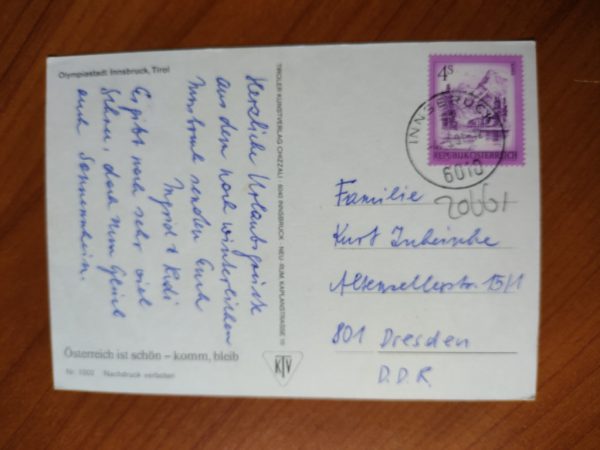 Olympiastadt Innsbruck, Tirol
Herzliche Urlaubsgrüsse
aus dem noch winterlichen
Innsbruck senden Euch
Ingrid + Rudi
Es gibt noch sehr viel
Schnee, doch zum Glück
auch Sonnenschein.
Österreich ist schön – komm, bleib
Nr. 1502 Nachdruck verboten!
TIROLER KUNSTVERLAG CHIZZALI · 6040 INNSBRUCK - NEU RUM, KAPLANSTRASSE 10
KTV
4S
REPUBLIK ÖSTERREICH
INNSBRUCK
6010
20661
Familie
Kurt
Altenzellerstr 15/1
801 Dresden
D.D.R.